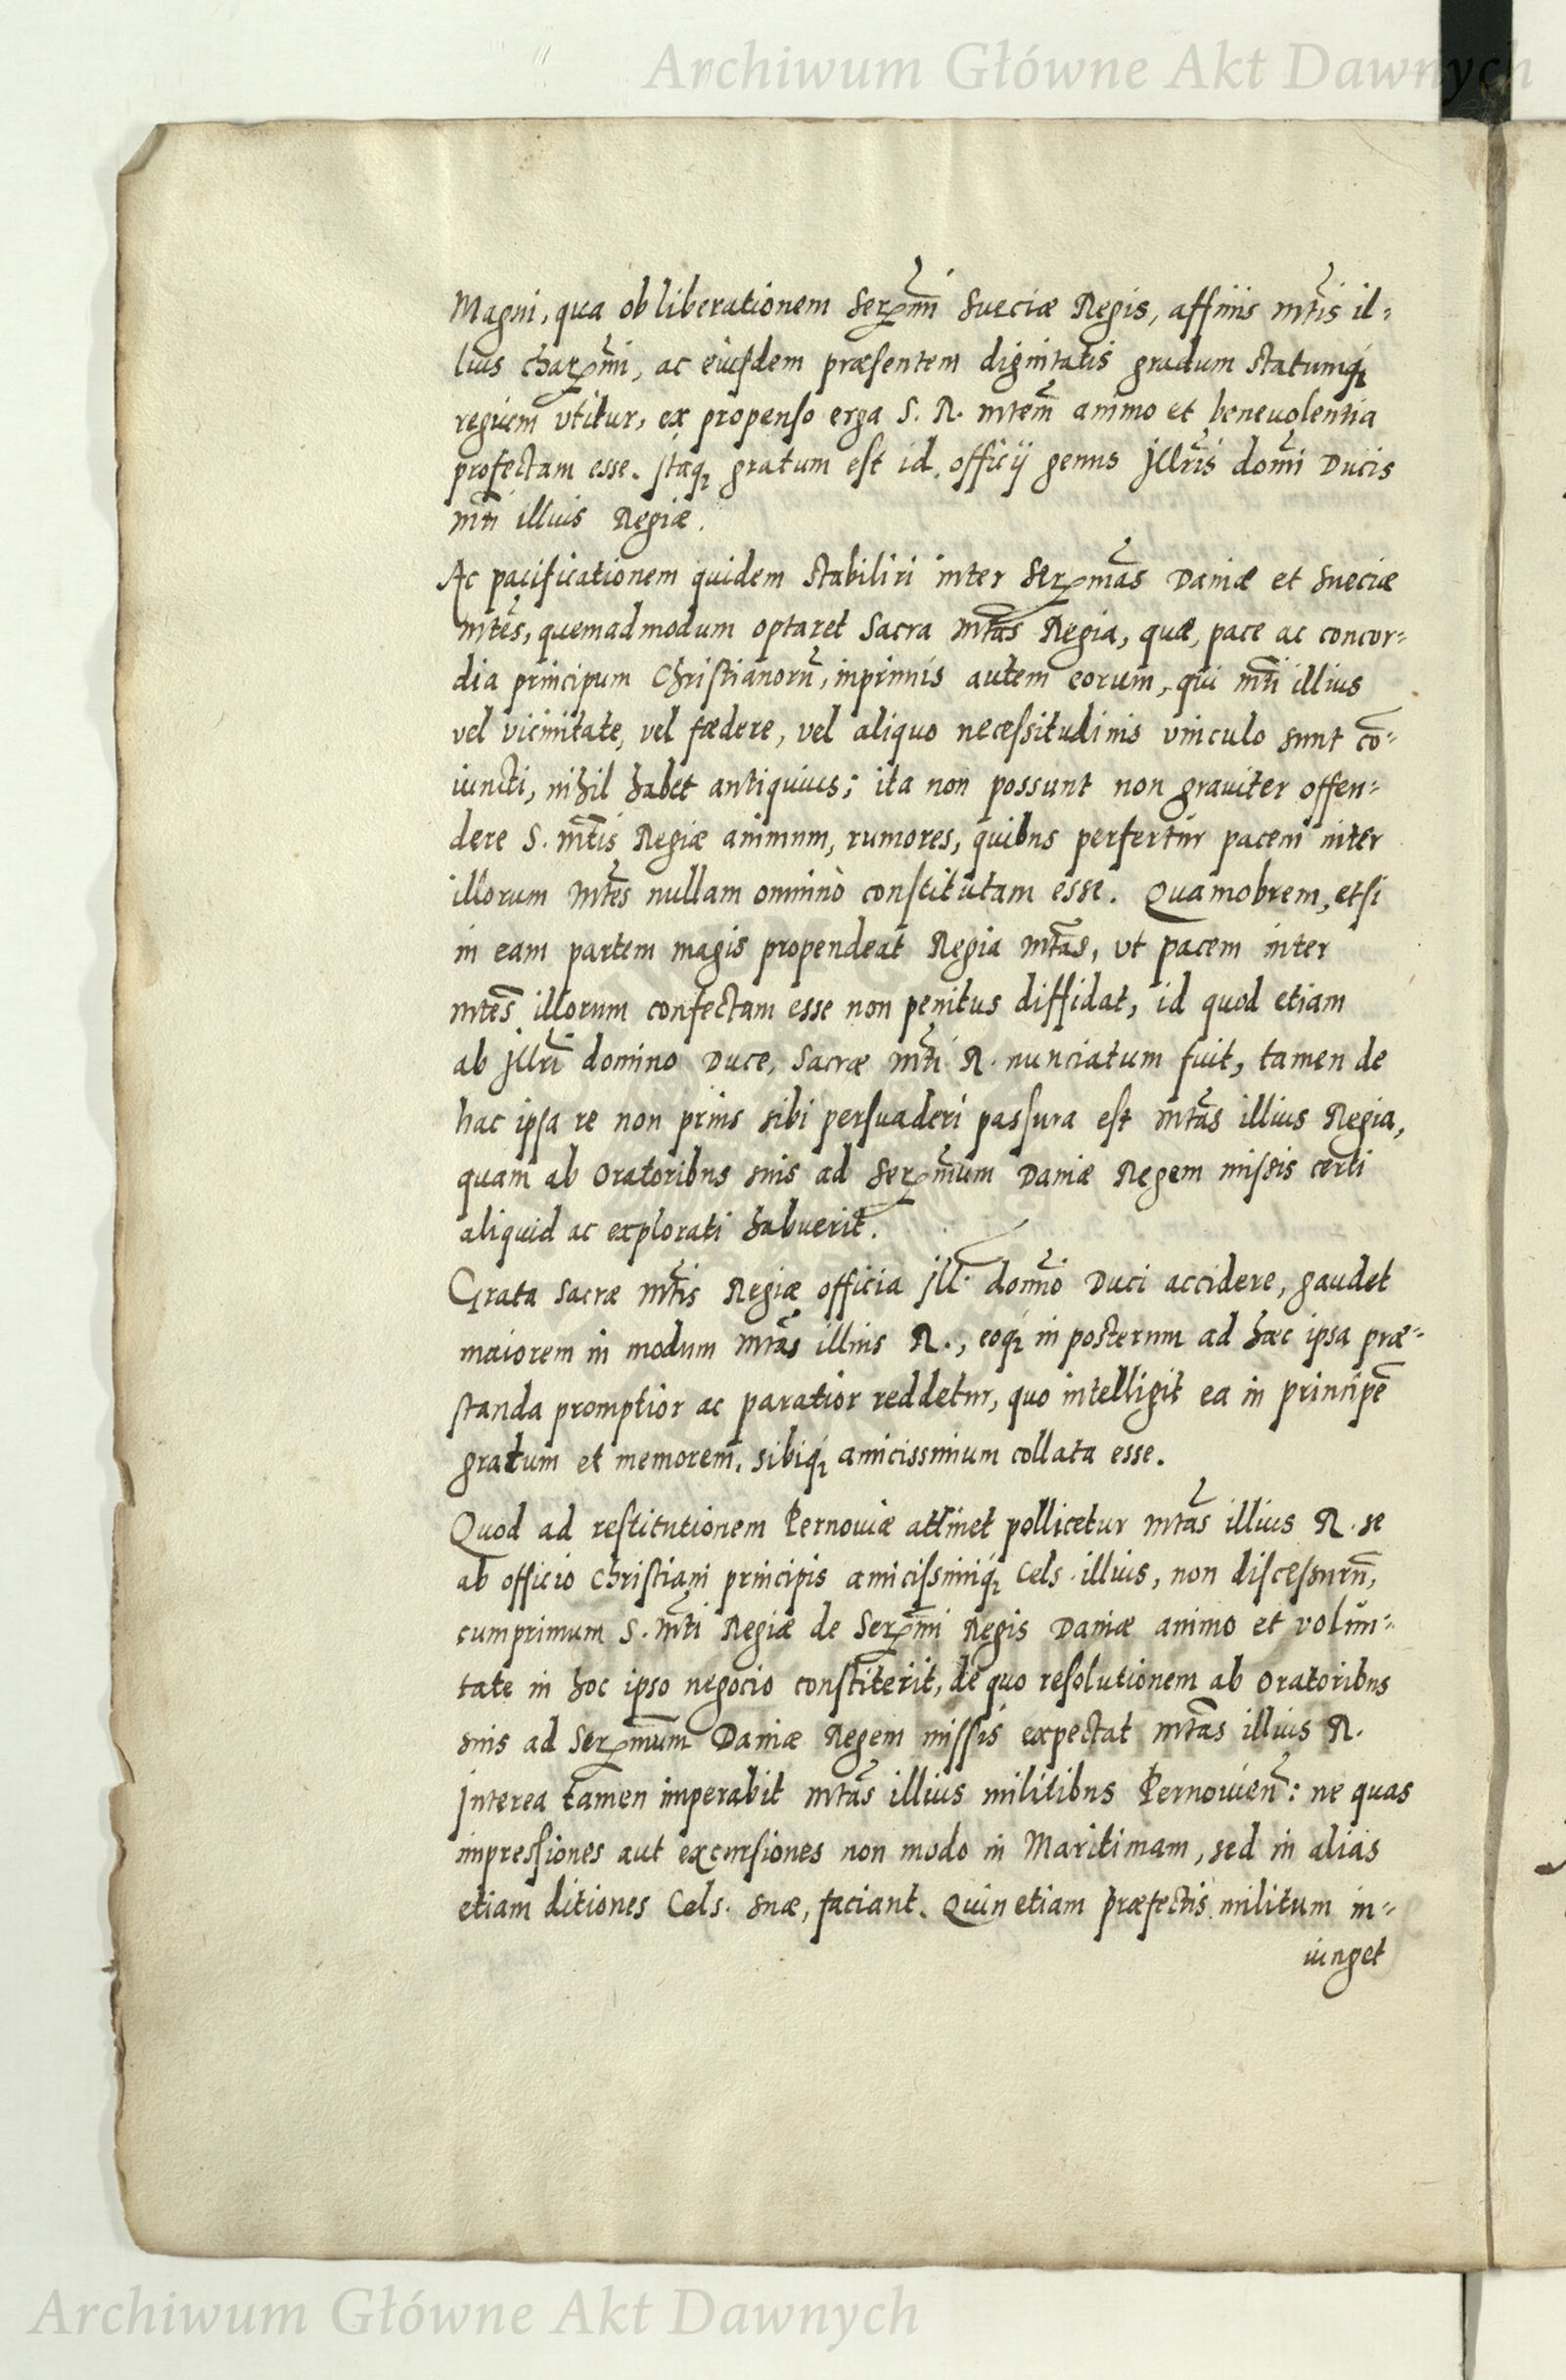 Archiwum Główne Akt Dawnych
Magni, qua ob liberationem Serᵐⁱ Sueciæ Regis, affinis Mtis il-
lius charᵐⁱ, ac eiusdem præsentem dignitatis gradum statumq;
regium utitur, ex propenso erga S. R. Mtem animo et beneuolentia
profectam esse. Itaq; gratum est id officij genus Jllris domi Ducis
Mti illius Regiæ.
Ac pacificationem quidem stabiliri inter Serᵐas Daniæ et Sueciæ
Mtes, quemadmodum optaret Sacra Mtas Regia, quæ, pace ac concor-
dia principum Christianorū, inprimis autem eorum, qui Mti illius
vel vicinitate, vel fœdere, vel aliquo necessitudinis vinculo sunt cō-
iuncti, nihil habet antiquius; ita non possunt non grauiter offen-
dere S. Mtis Regiæ animum, rumores, quibus perfertur pacem inter
illorum Mtes nullam omninò constitutam esse. Quamobrem, etsi
in eam partem magis propendeat Regia Mtas, ut pacem inter
Mtes illorum confectam esse non penitus diffidat, id quod etiam
ab Jllri domino Duce, Sacræ Mti R. nunciatum fuit, tamen de
hac ipsa re non prius sibi persuaderi passura est Mtas illius Regia,
quam ab Oratoribus suis ad Serᵐum Daniæ Regem missis certi
aliquid ac explorati habuerit.
Grata Sacræ Mtis Regiæ officia Jll. domno Duci accidere, gaudet
maiorem in modum Mtas illius R., eoq; in posterum ad hæc ipsa præ-
standa promptior ac paratior reddetur, quo intelligit ea in principē
gratum et memorem, sibiq; amicissimum collata esse.
Quod ad restitutionem Pernouiæ attinet pollicetur Mtas illius R. se
ab officio Christiani principis amicissimiq; Cels. illius, non discessurū,
cumprimum S. Mti Regiæ de Serᵐⁱ Regis Daniæ animo et volun-
tate in hoc ipso negocio constiterit, de quo resolutionem ab Oratoribus
suis ad Serᵐum Daniæ Regem missis expectat Mtas illius R.
Interea tamen imperabit Mtas illius militibus Pernouien: ne quas
impressiones aut excursiones non modo in Maritimam, sed in alias
etiam ditiones Cels. suæ, faciant. Quin etiam præfectis militum in-
iunget
Archiwum Główne Akt Dawnych